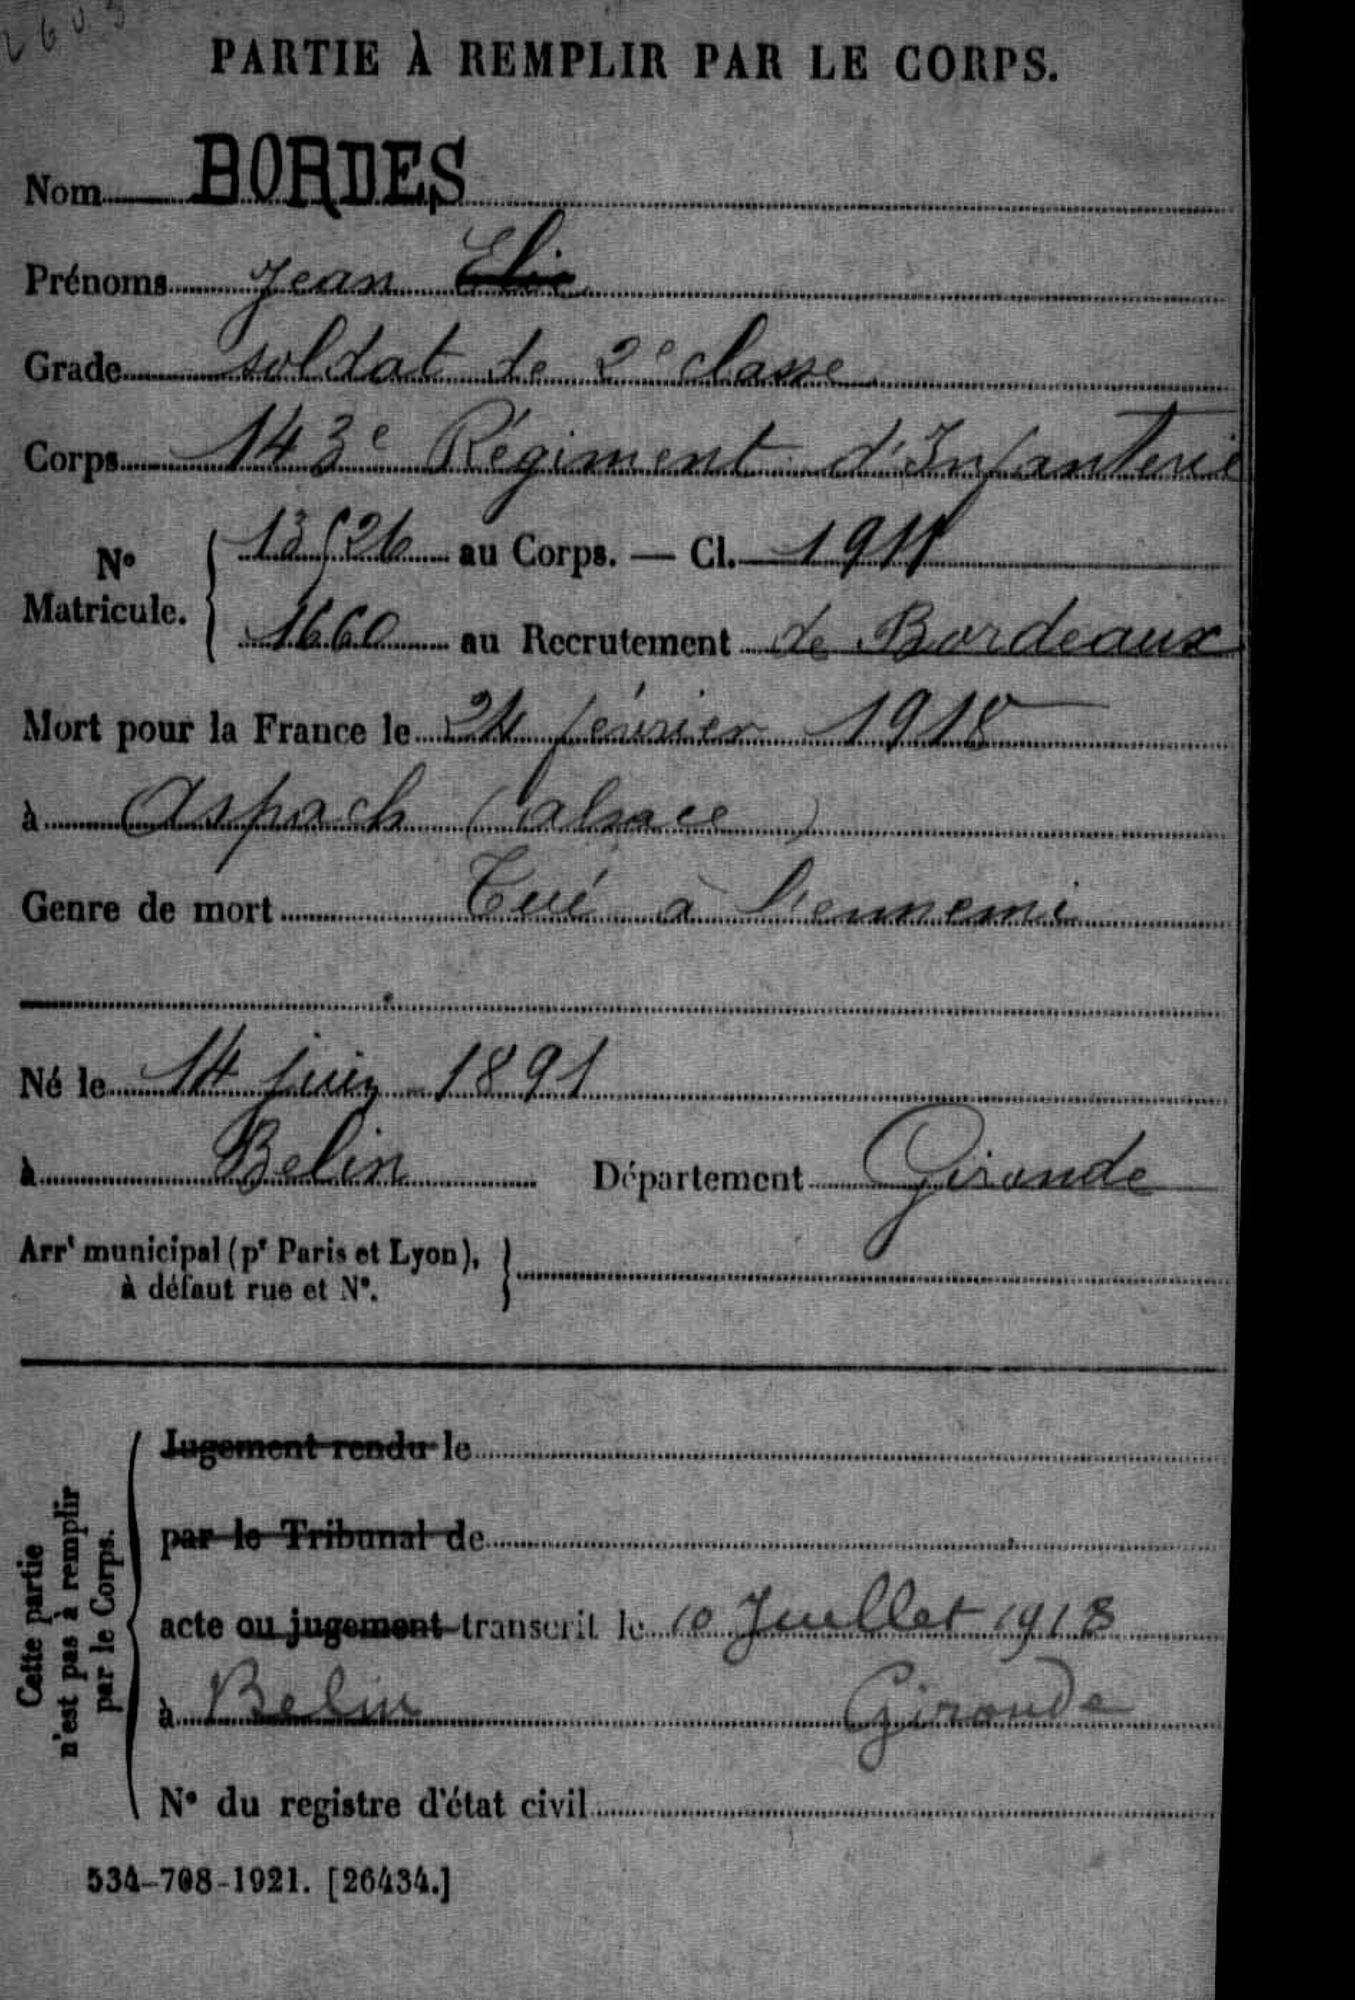 PARTIE À REMPLIR PAR LE CORPS.
Nom BORDES
Prénoms Jean Elie
Grade soldat de 2e classe
Corps 143e Régiment d'Infanterie
No Matricule. { 13526 au Corps. — Cl. 1911
1660 au Recrutement de Bordeaux
Mort pour la France le 24 février 1918
à Aspach (alsace)
Genre de mort Tué à l'ennemi
Né le 14 juin 1891
à Belin Département Gironde
Arrt municipal (pr Paris et Lyon), }
à défaut rue et No.
Cette partie
n'est pas à remplir
par le Corps.
Jugement rendu le
par le Tribunal de
acte ou jugement transcrit le 10 Juillet 1918
à Belin Gironde
No du registre d'état civil
534-708-1921. [26434.]